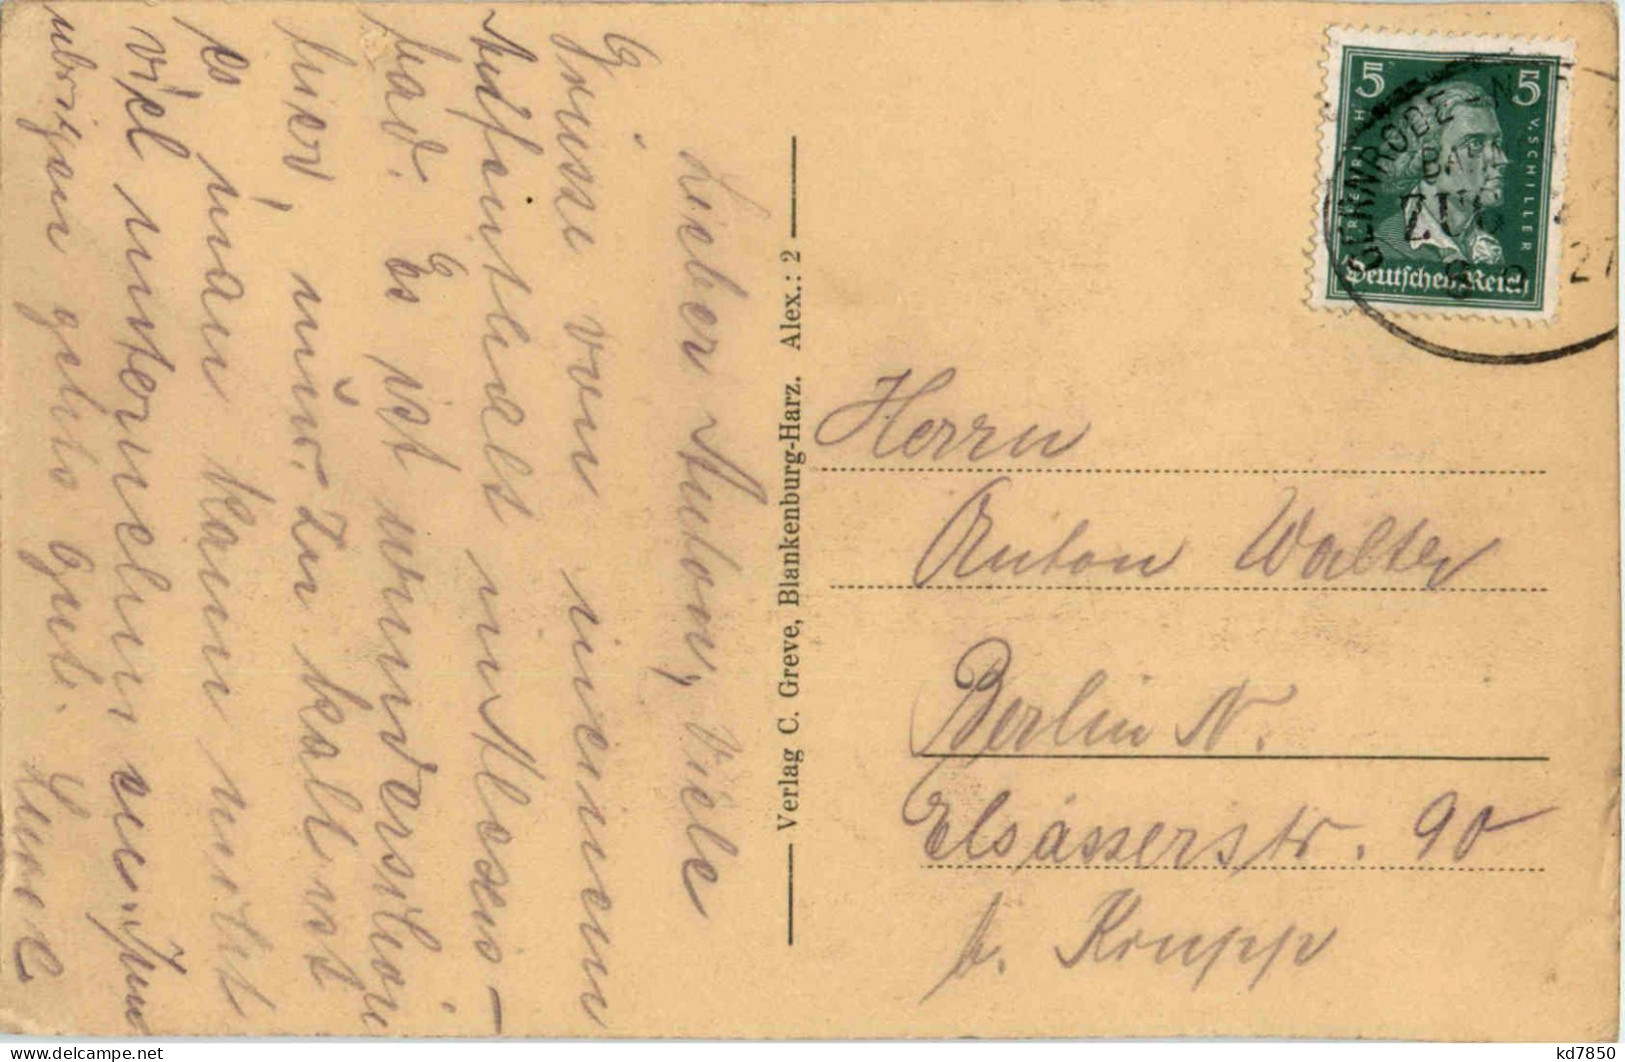 Lieber Anton, Viele
Grüsse von meinem
Aufenthalt in Alexis-
bad. Es ist wunderschön
hier, nur. Zu kalt ist
es man kann nicht
viel unternehmen. Im
übrigen gehts gut.
Verlag C. Greve, Blankenburg-Harz. Alex.: 2
5 5
FRIEDRICH V. SCHILLER
Deutsches Reich
GERNRODE-
BAHN
ZUG
27
Herrn
Anton Walter
Berlin N.
Elsässerstr. 90
b. Krupp
kd7850